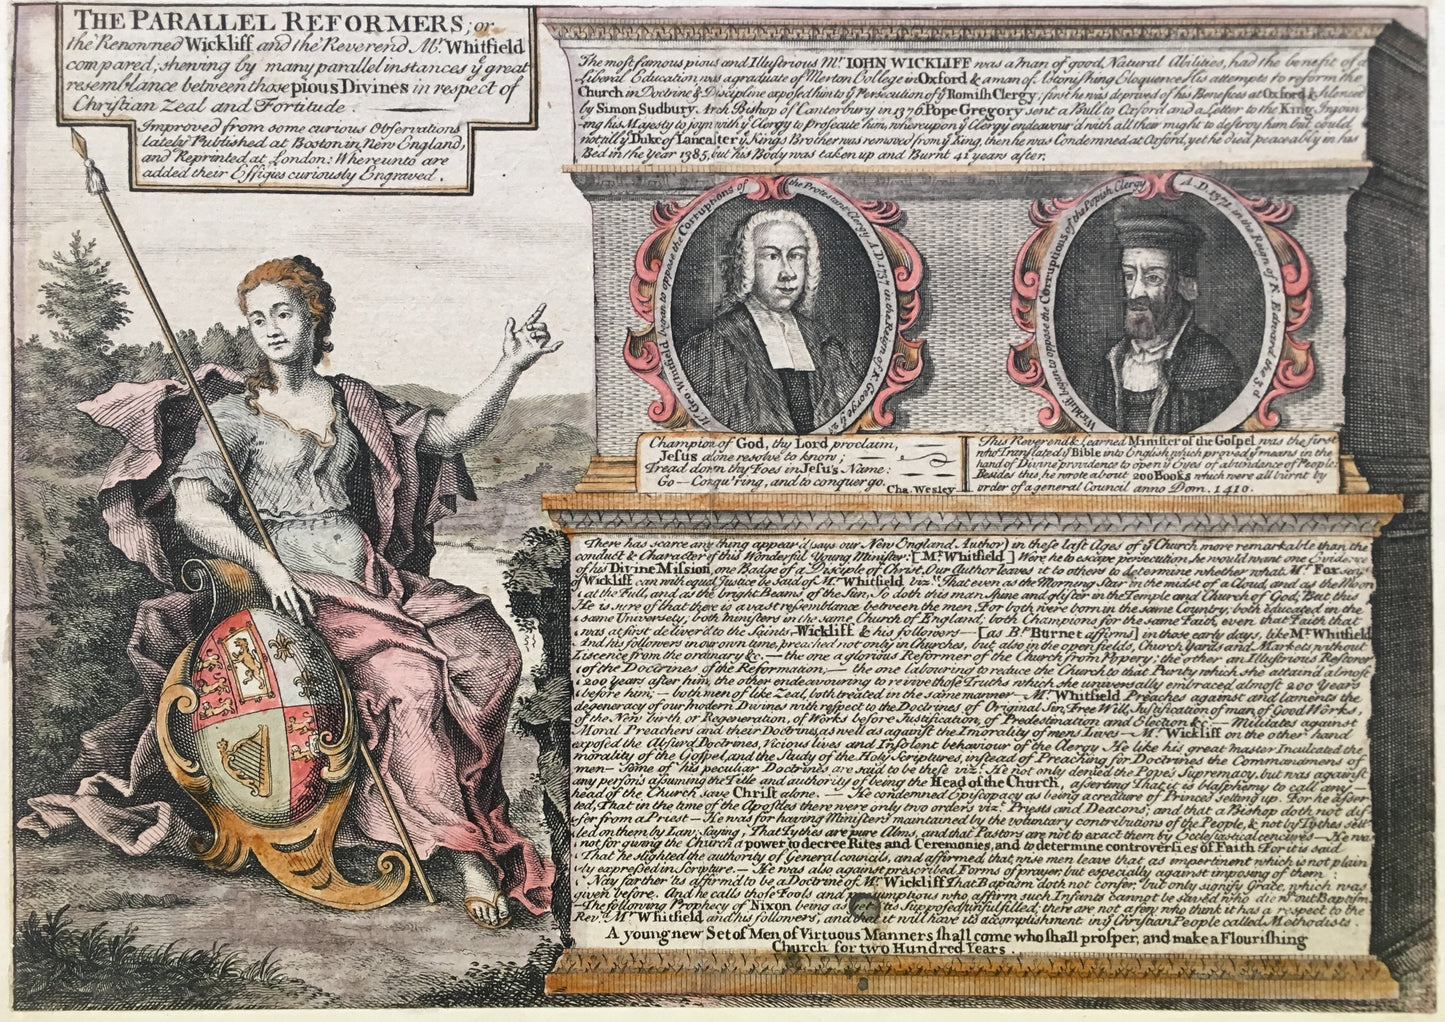 THE PARALLEL REFORMERS; or
the Renowned Wickliff and the Reverend Mr. Whitfield
compared; shewing by many parallel instances ye great
resemblance between those pious Divines in respect of
Christian Zeal and Fortitude.
Improved from some curious Observations
lately Published at Boston in New England,
and Reprinted at London: Whereunto are
added their Effigies curiously Engraved.
The most famous pious and Illustrious Mr. IOHN WICKLIFF was a man of good Natural Abilities, had the benefit of a
Liberal Education, was a graduate of Merton College in Oxford & a man of Astonishing Eloquence. His attempts to reform the
Church in Doctrine & Discipline exposed him to ye Persecution of ye Romish Clergy; first he was deprived of his Benefices at Oxford & silenced
by Simon Sudbury. Arch Bishop of Canterbury in 1376. Pope Gregory sent a Bull to Oxford and a Letter to the King Injoyn
-ing his Majesty to joyn with ye Clergy to prosecute him, whereupon ye Clergy endeavour'd with all their might to destroy him but could
not till ye Duke of Lancaster ye Kings Brother was removed from ye King, then he was Condemned at Oxford, yet he died peaceably in his
Bed in the year 1385, but his Body was taken up and Burnt 41 years after.
Mr. Geo Whitfield began to oppose the Corruptions of the Protestant Clergy A.D. 1737 in the Reign of K. George ye 2d
Wickliff began to oppose the Corruptions of the Popish Clergy A.D. 1371 in the Reign of K. Edward the 3d
Champion of God, thy Lord proclaim,
Jesus alone resolve to know;
Tread down thy Foes in Jesu's Name:
Go — Conqu'ring, and to conquer go.
Cha. Wesley
This Reverend & learned Minister of the Gospel was the first
who Translated ye Bible into English which proved ye means in the
hand of Divine providence to open ye Eyes of abundance of People:
Besides this, he wrote about 200 Books which were all burnt by
order of a general Council anno Dom. 1410.
There has scarce any thing appear'd (says our New England Author) in these last Ages of ye Church more remarkable than the
conduct & Character of this Wonderful Young Minister: [Mr. Whitfield] Were he to escape persecution, he would want one Evidence
of his Divine Mission, one Badge of a Disciple of Christ. Our Author leaves it to others to determine whether what Mr. Fox says
of Wickliff can with equal Justice be said of Mr. Whitfield viz. That even as the Morning Star in the midst of a Cloud, and as the Moon
at the Full, and as the bright Beams of the Sun, So doth this man shine and glister in the Temple and Church of God; But this
He is sure of that there is a vast resemblance between the men, For both were born in the same Country, both educated in the
same University, both Ministers in the same Church of England, both Champions for the same Faith, even that Faith that
was at first deliver'd to the Saints — Wickliff & his followers — [as Bp. Burnet affirms] in those early days, like Mr. Whitfield
And his followers in our own time, preached not only in Churches, but also in the open fields, Church Yards and Markets without
Liscence from the ordinary &c. — the one a glorious Reformer of the Church from Popery; the other an Illustrious Restorer
of the Doctrines of the Reformation; — the one Labouring to reduce the Church to that Purity which she attained almost
200 years after him; the other endeavouring to revive those Truths which she universally embraced almost 200 Years
before him; — both men of like Zeal, both treated in the same manner — Mr. Whitfield Preaches against and laments the
degeneracy of our modern Divines with respect to the Doctrines of Original Sin, Free Will, Justification of man of Good Works,
of the New birth or Regeneration, of Works before Justification, of Predestination and Election &c. — Militates against
Moral Preachers and their Doctrins, as well as against the Imorality of mens Lives — Mr. Wickliff on the other hand
exposed the Absurd Doctrines, Vicious lives and Insolent behaviour of the Clergy He like his great master Inculcated the
morality of the Gospel, and the Study of the Holy Scriptures, instead of Preaching for Doctrines the Commandmens of
men — Some of his peculiar Doctrines are said to be these viz. He not only denied the Pope's Supremacy, but was against
any persons assuming the Title and authority of being the Head of the Church, asserting That it is blasphemy to call any —
head of the Church save Christ alone. — He condemned Episcopacy as being a creature of Princes setting up. For he asser
ted, That in the time of the Apostles there were only two orders viz. Priests and Deacons; and that a Bishop doth not dif
fer from a Priest — He was for having Ministers maintained by the voluntary contributions of the People, & not by Tythes sett
led on them by Law, saying, That Tythes are pure Alms, and that Pastors are not to exact them by Ecclesiastical cencures — He was
not for giving the Church a power to decree Rites and Ceremonies, and to determine controversies of Faith For it is said
That he slighted the authority of General councils, and affirmed that wise men leave that as impertinent which is not plain
ly expressed in Scripture. — He was also against prescribed Forms of prayer, but especially against imposing of them
Nay farther 'tis affirmd to be a Doctrine of Mr. Wickliff That Baptism doth not confer, but only signify Grace, which was
given before. And he calls those Fools and presumptious who affirm such Infants cannot be saved who die without Baptism.
— The following Prophecy of Nixon being as yet 'tis Supposed unfulfilled, there are not a few who think it has a respect to the
Rev. Mr. Whitfield and his followers, and that it will have its accomplishment in ye Christian People called Methodists.
A young new Set of Men of Virtuous Manners shall come who shall prosper, and make a Flourishing
Church for two Hundred Years.